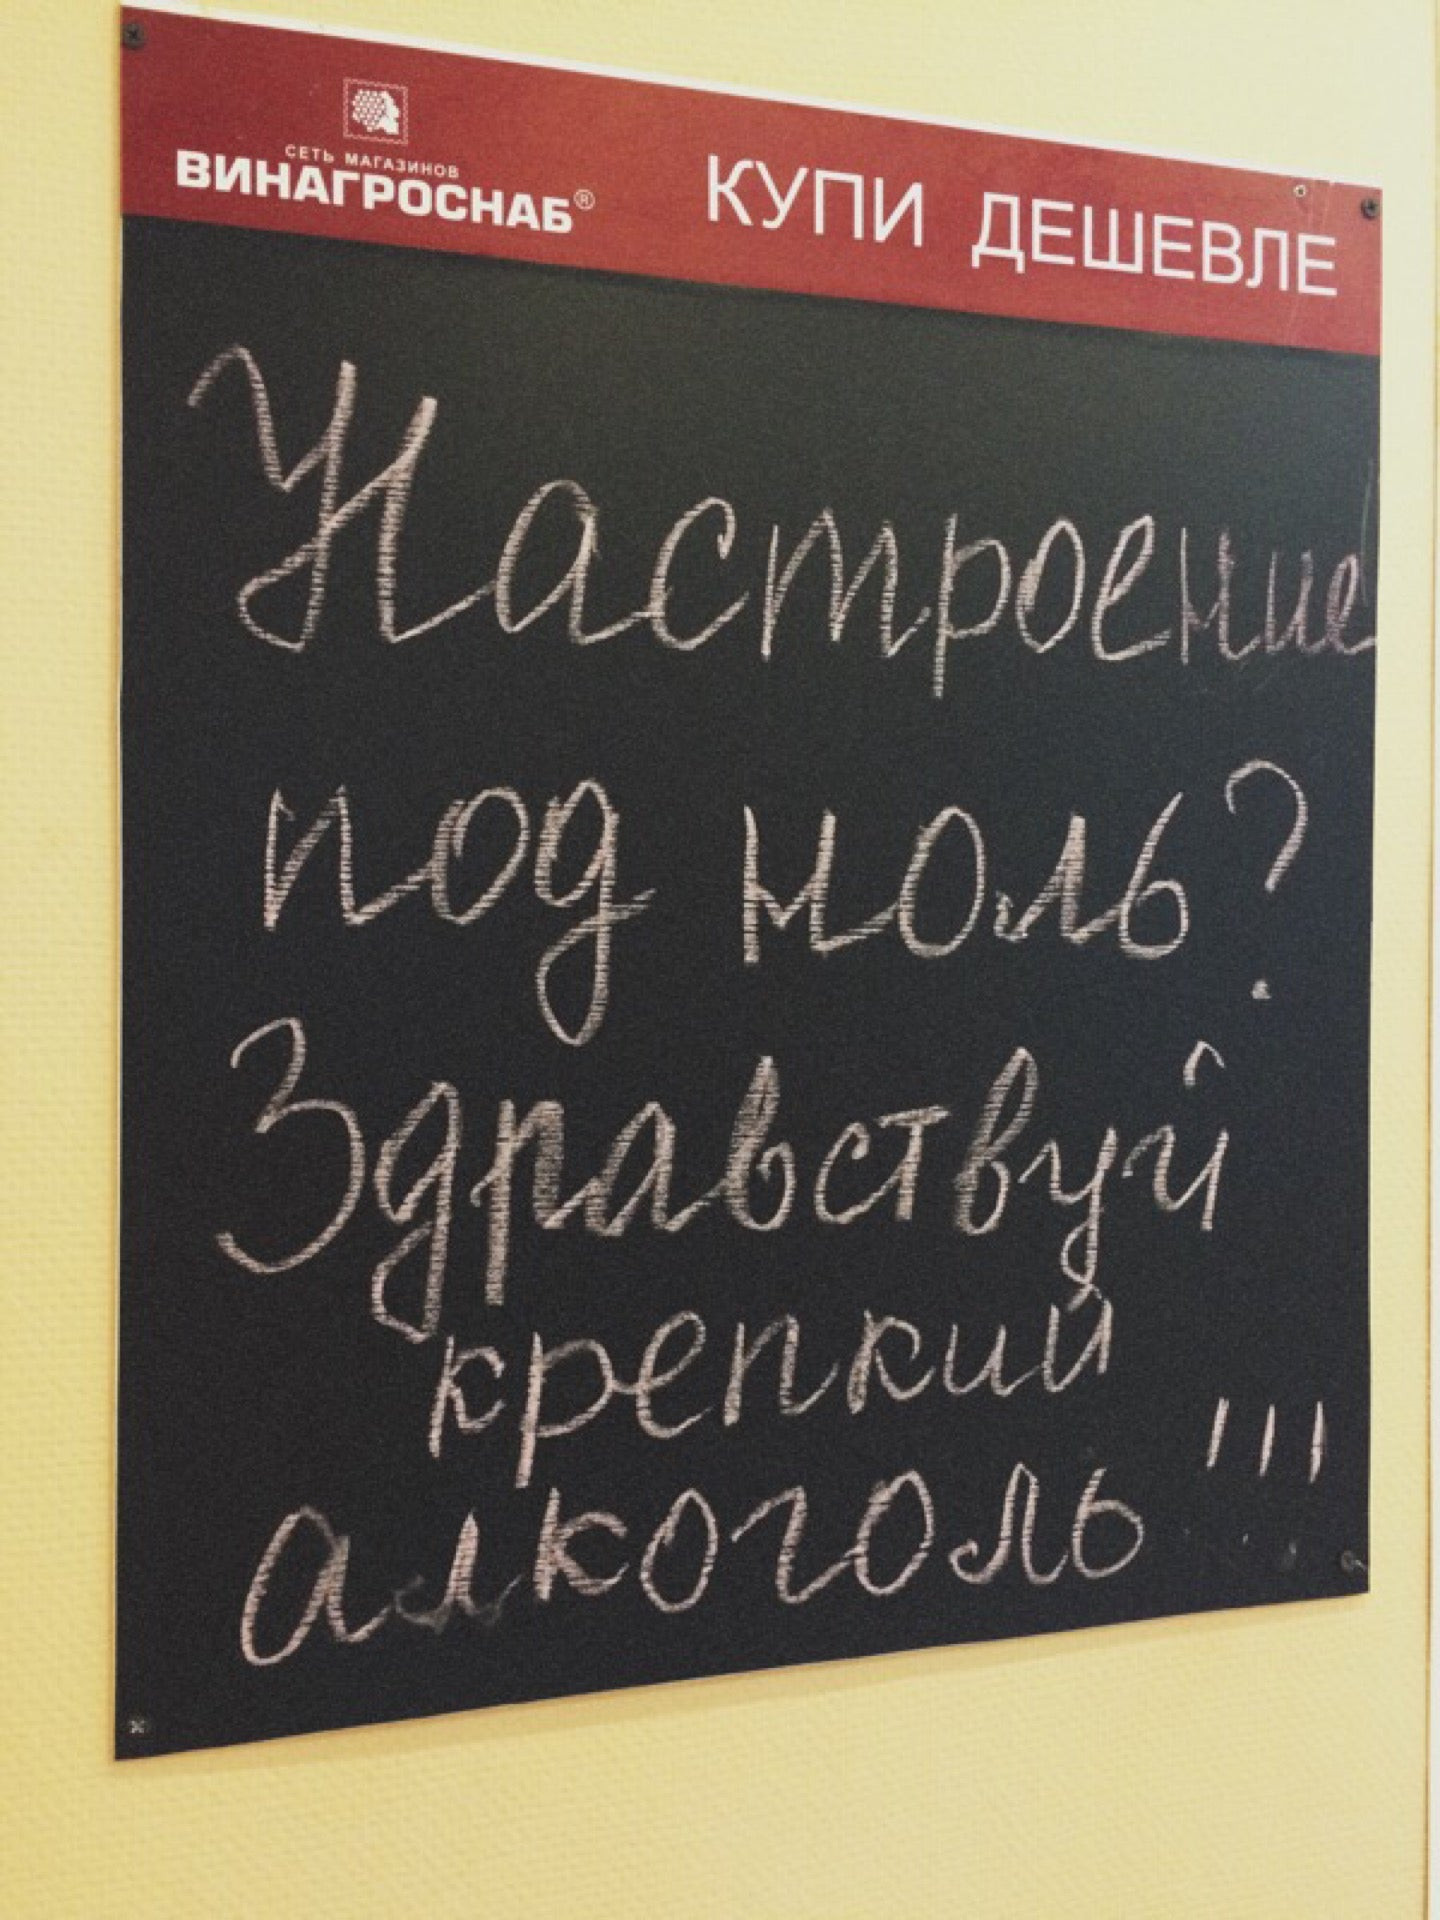 СЕТЬ МАГАЗИНОВ
ВИНАГРОСНАБ®
КУПИ ДЕШЕВЛЕ
Настроение
под ноль?
Здравствуй
крепкий
алкоголь!!!